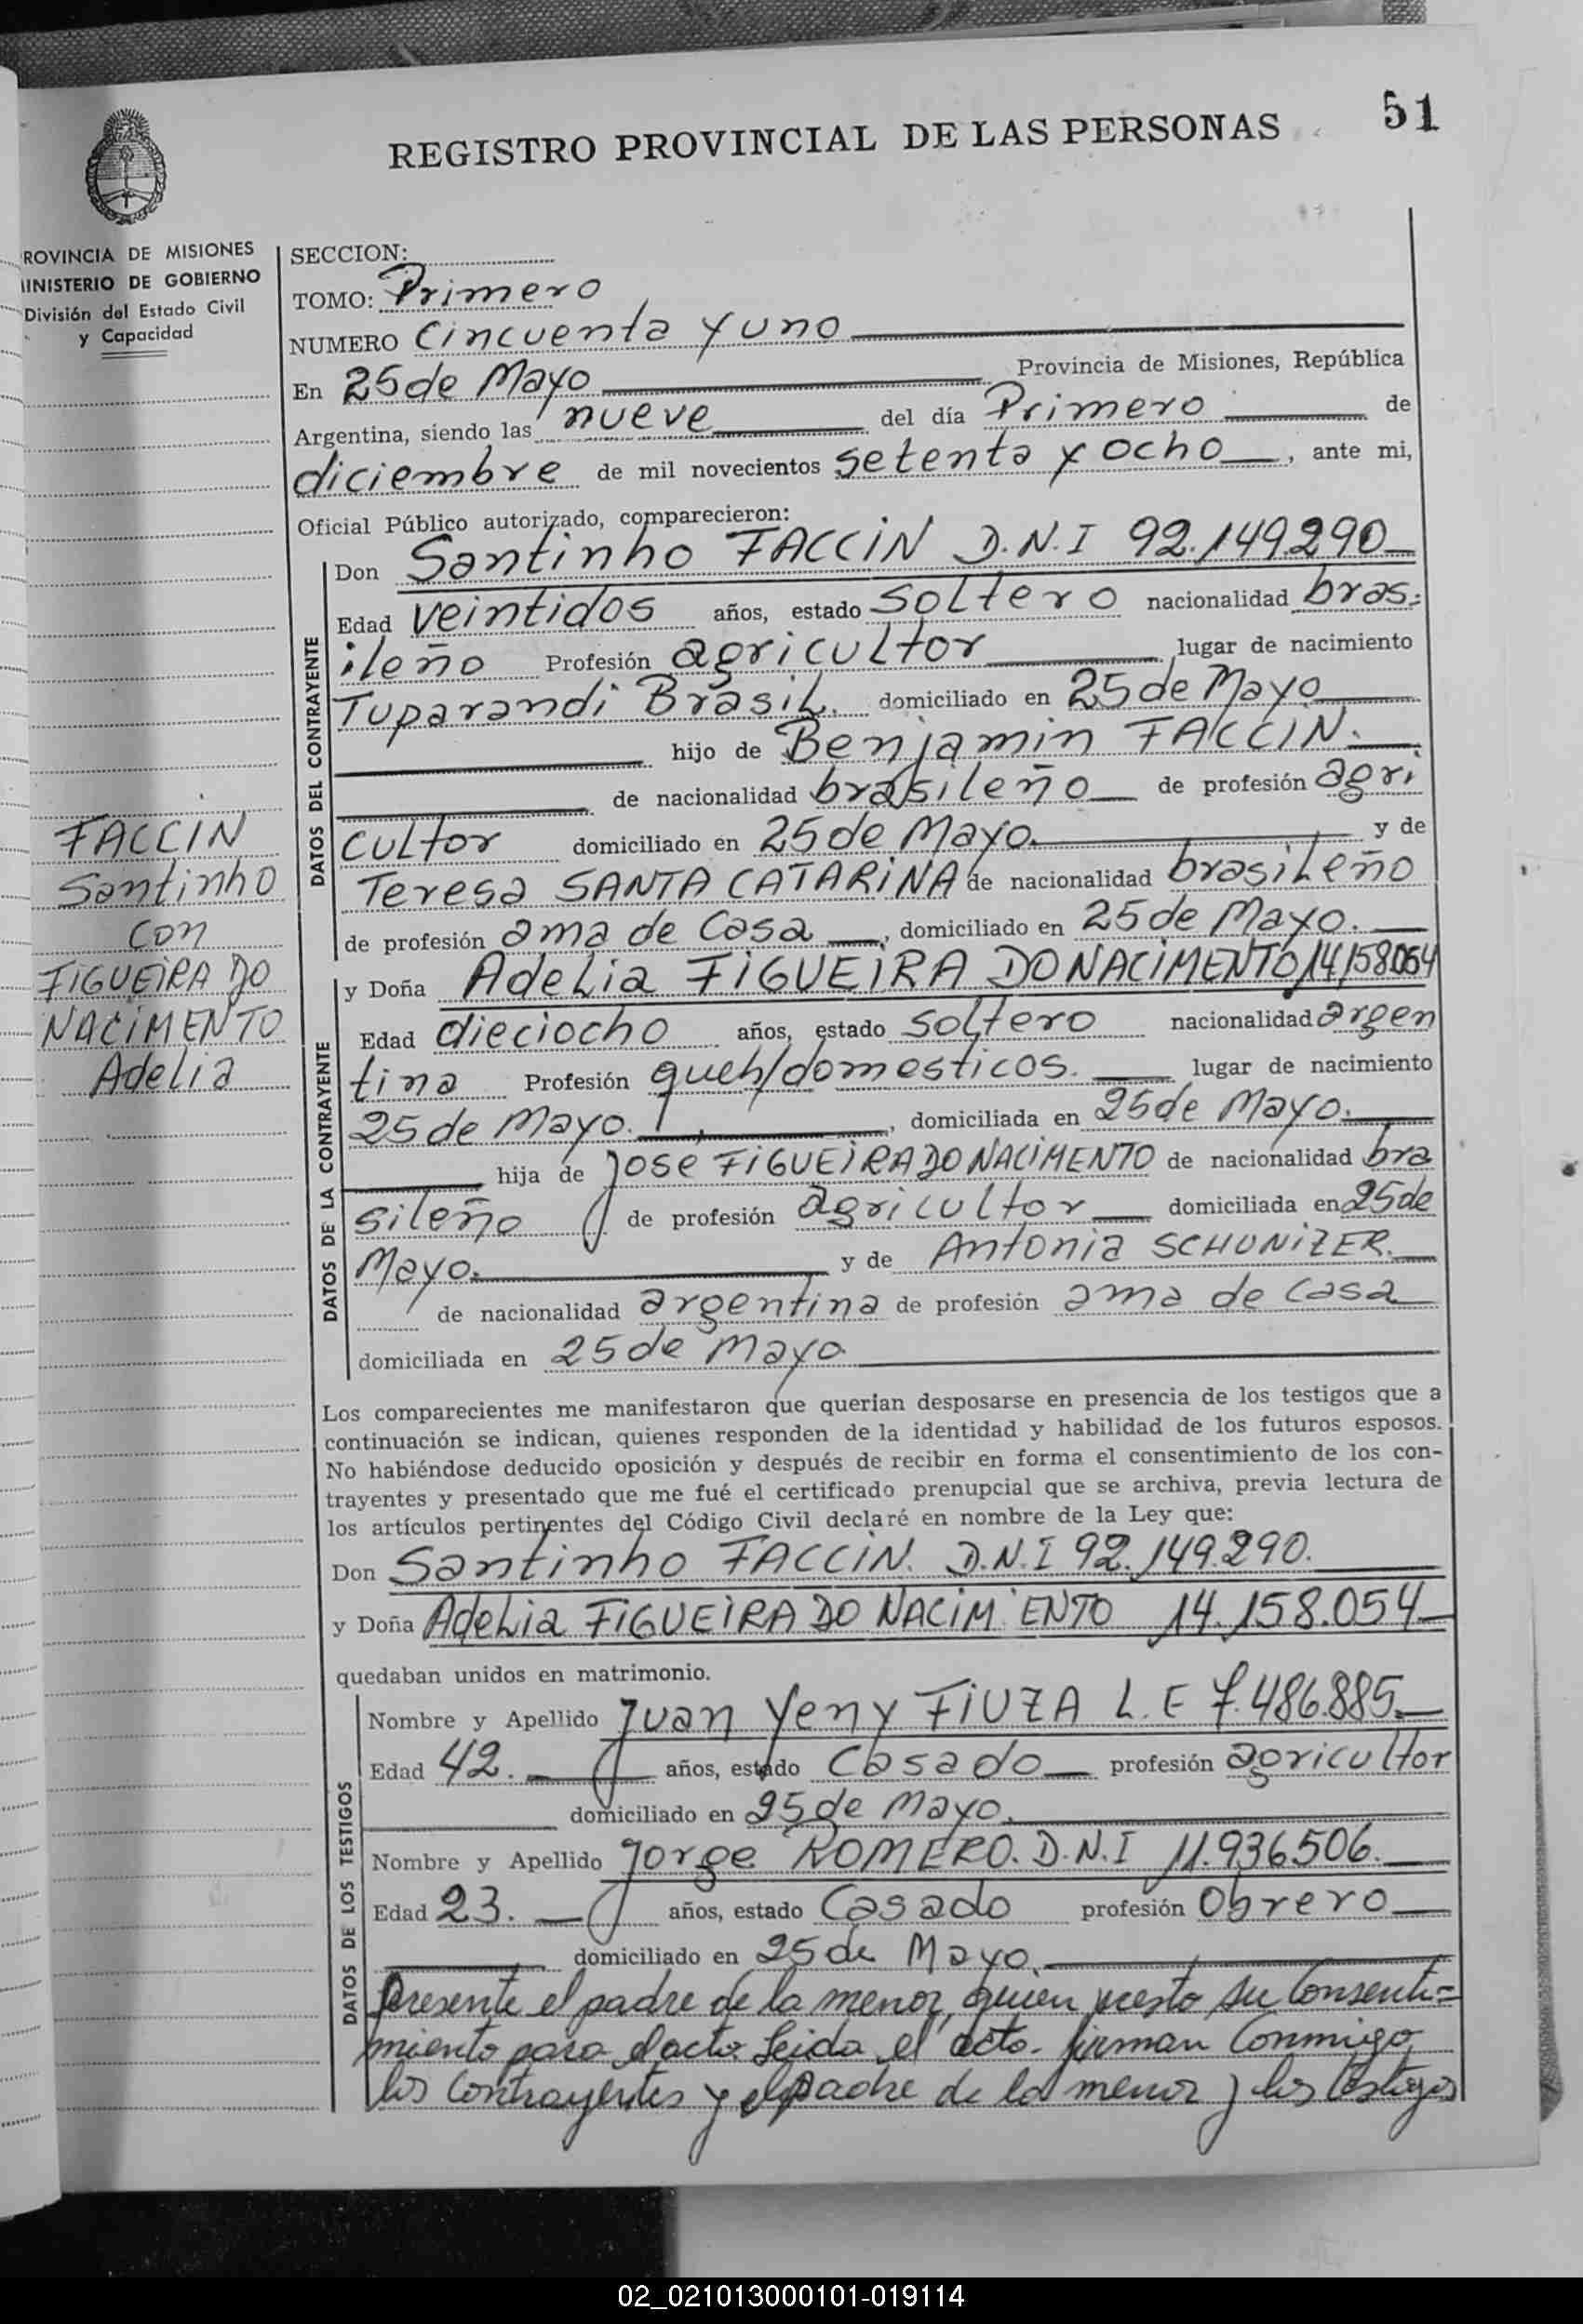 51
REGISTRO PROVINCIAL DE LAS PERSONAS
ROVINCIA DE MISIONES
INISTERIO DE GOBIERNO
División del Estado Civil
y Capacidad
SECCION:
TOMO: Primero
NUMERO Cincuenta y uno
En 25 de Mayo Provincia de Misiones, República
Argentina, siendo las nueve del día Primero de
diciembre de mil novecientos setenta y ocho, ante mi,
Oficial Público autorizado, comparecieron:
DATOS DEL CONTRAYENTE
Don Santinho FACCIN D.N.I 92.149.290
Edad veintidos años, estado soltero nacionalidad bras-
ileño Profesión agricultor lugar de nacimiento
Tuparandi Brasil. domiciliado en 25 de Mayo
hijo de Benjamin FACCIN.
de nacionalidad brasileño de profesión agri
cultor domiciliado en 25 de Mayo. y de
Teresa SANTA CATARINA de nacionalidad brasileño
de profesión ama de Casa, domiciliado en 25 de Mayo.
FACCIN
Santinho
con
FIGUEIRA DO
NACIMENTO
Adelia
DATOS DE LA CONTRAYENTE
y Doña Adelia FIGUEIRA DO NACIMENTO 14.158.054
Edad dieciocho años, estado soltero nacionalidad argen
tina Profesión queh/domesticos. lugar de nacimiento
25 de Mayo., domiciliada en 25 de Mayo.
hija de Jose FIGUEIRA DO NACIMENTO de nacionalidad bra
sileño de profesión agricultor domiciliada en 25 de
Mayo. y de Antonia SCHUNIZER.
de nacionalidad argentina de profesión ama de casa
domiciliada en 25 de Mayo
Los comparecientes me manifestaron que querían desposarse en presencia de los testigos que a
continuación se indican, quienes responden de la identidad y habilidad de los futuros esposos.
No habiéndose deducido oposición y después de recibir en forma el consentimiento de los con-
trayentes y presentado que me fué el certificado prenupcial que se archiva, previa lectura de
los artículos pertinentes del Código Civil declaré en nombre de la Ley que:
Don Santinho FACCIN. D.N.I 92.149.290.
y Doña Adelia FIGUEIRA DO NACIMENTO 14.158.054
quedaban unidos en matrimonio.
DATOS DE LOS TESTIGOS
Nombre y Apellido Juan Yeny FIUZA L.E 7.486.885.
Edad 42. años, estado Casado profesión agricultor
domiciliado en 25 de Mayo.
Nombre y Apellido Jorge ROMERO. D.N.I 11.936506.
Edad 23. años, estado Casado profesión Obrero
domiciliado en 25 de Mayo.
Presente el padre de la menor, quien presto su Consenti=
miento para el acto. Leida el acto. firman Conmigo
los Contrayentes y el padre de la menor y los testigos
02_021013000101-019114